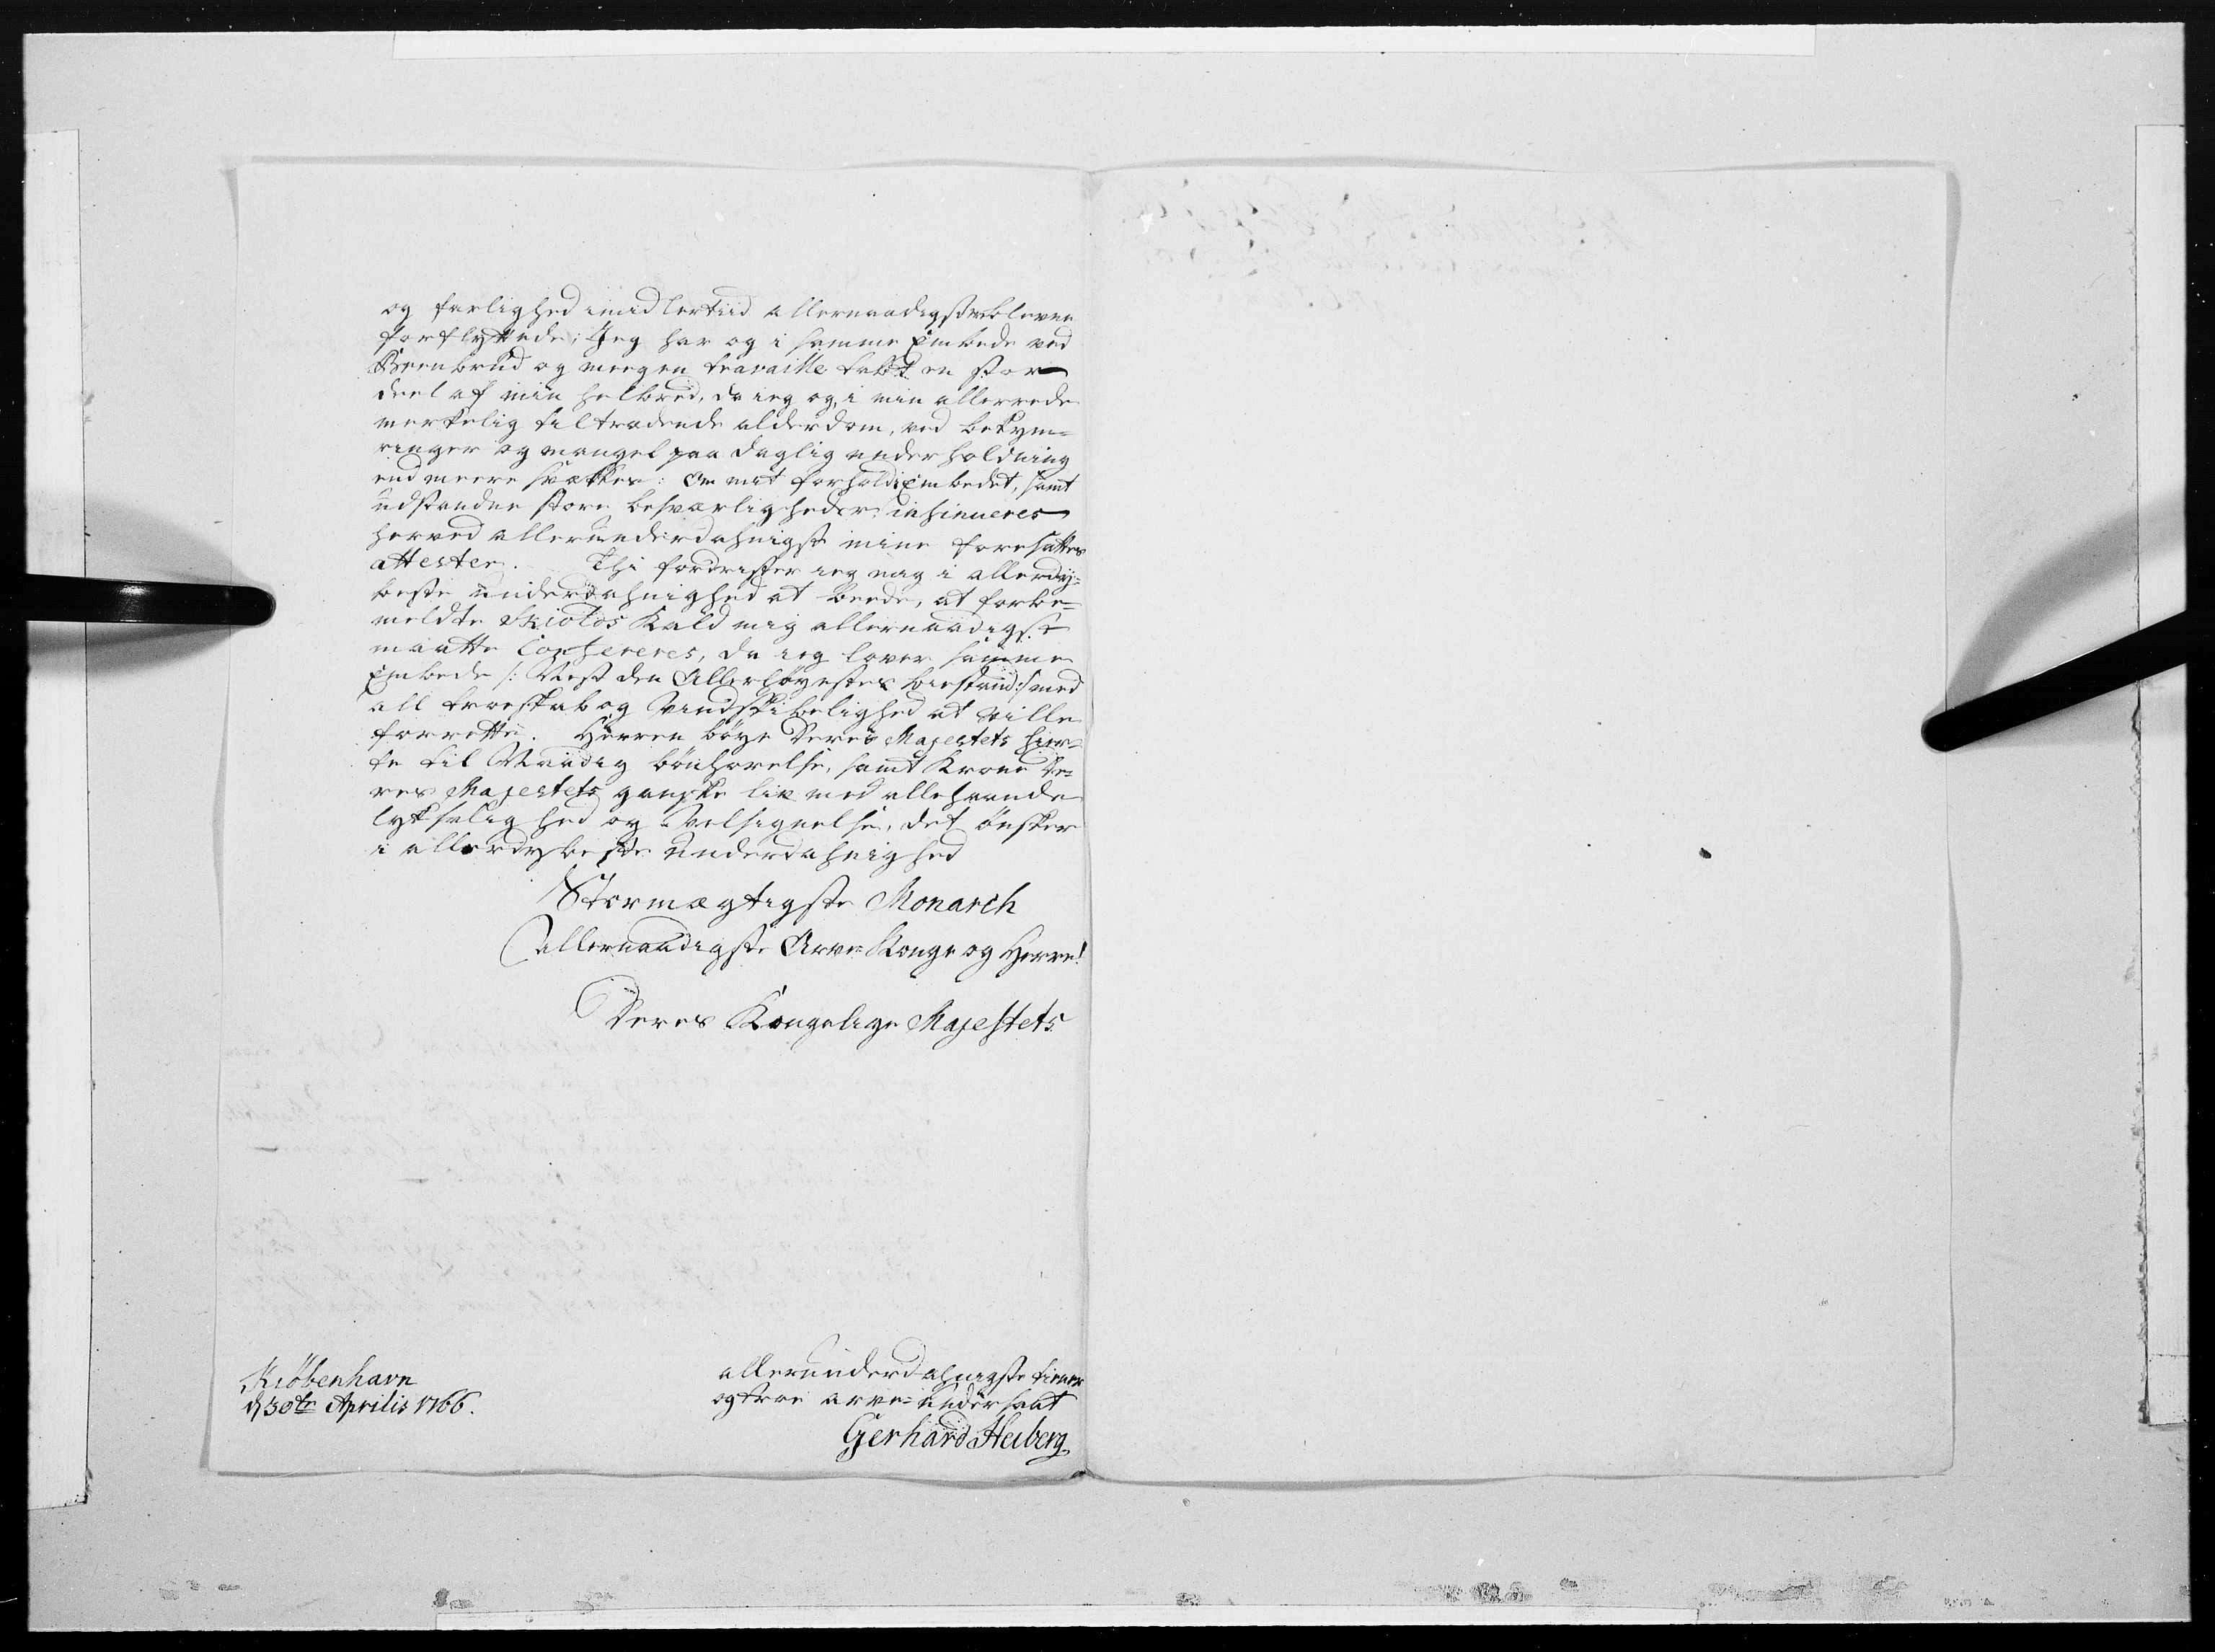 og farlighed imidlertiid allernaadigst ere blevne
forflyttede; Jeg har og i samme Embede ved
Beenbrud og meegen travaille tabt en stor
deel af min helbred, da ieg og, i min allerrede
merkelig tiltrædende alderdom, ved bekym=
ringer og mangel paa daglig underholdning
end meere svækkes: Om mit forhold i Embedet, samt
udstandne store besværligheder insinueres
herved allerunderdahnigst mine foresattes
attester. Thi fordrister ieg mig i allerdy=
beste underdahnighed at beede, at forbe=
meldte Skiolds Kald mig allernaadigst
maatte Confereres, da ieg lover samme
Embede /: Nest den Allerhøyestes biestand :/ med
all troeskab og Vindskibelighed at ville
forrette. Herren bøye Deres Majestets hier=
te til Naadig bønhørelse, samt Krone De=
res Majestets ganske liv med allehaande
lyksalighed og Velsignelse, det ønsker
i allerdybeste underdahnighed
Stormægtigste Monarch
Allernaadigste Arve Konge og Herre!
Deres Kongelige Majestets
Kiöbenhavn
d 30te Aprilis 1766.
allerunderdahnigste tiener
og troe arve-undersaat
Gerhard Heiberg